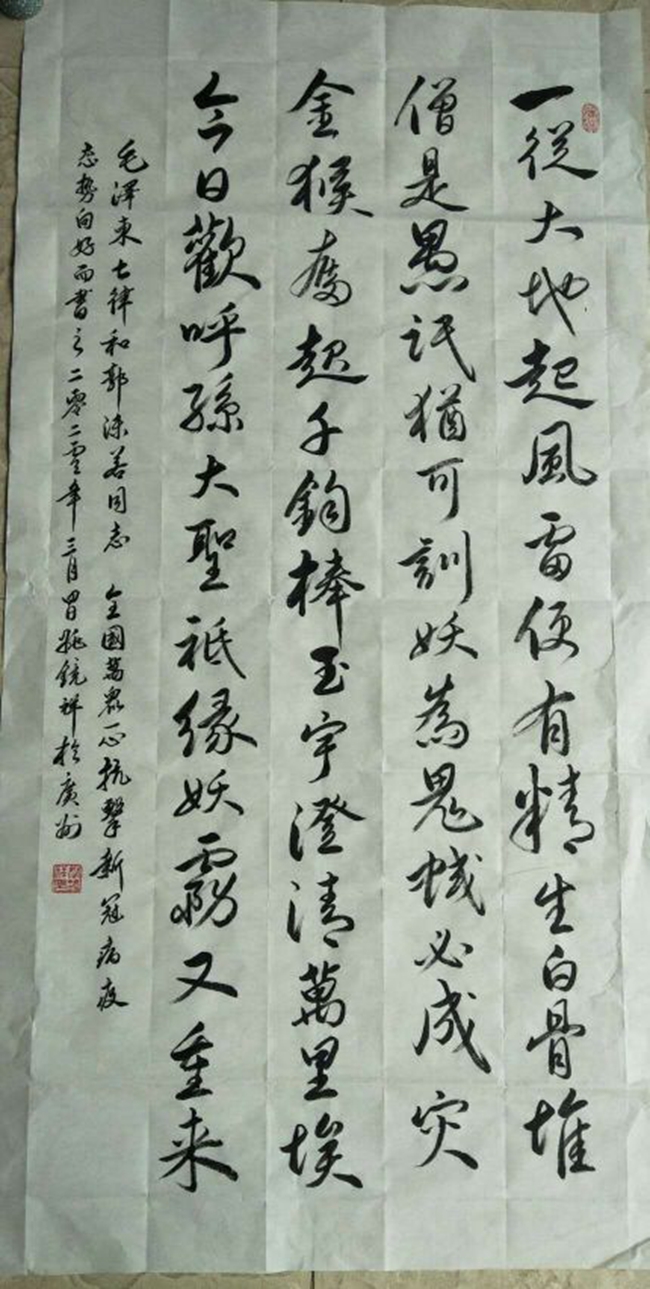 一從大地起風雷便有精生白骨堆
僧是愚氓猶可訓妖為鬼蜮必成災
金猴奮起千鈞棒玉宇澄清萬里埃
今日歡呼孫大聖祇緣妖霧又重来
毛澤東七律和郭沫若同志 全國萬眾一心抗擊新冠病疫
态勢向好而書之二零二零年三月 姚鏡祥於廣州